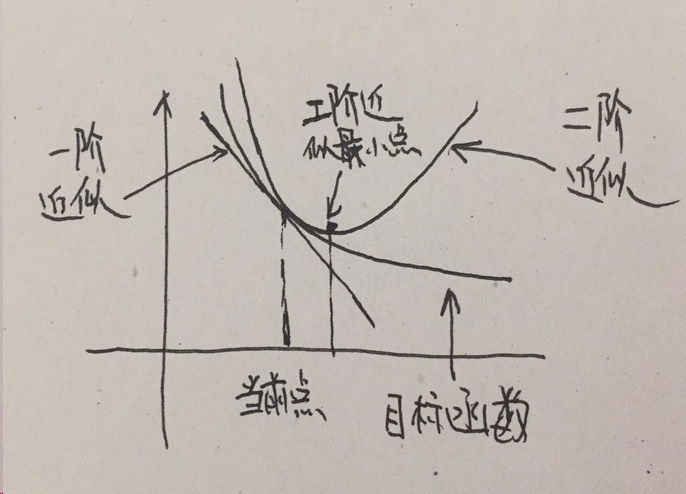 一阶
近似
二阶近
似最小点
二阶
近似
当前点
目标函数